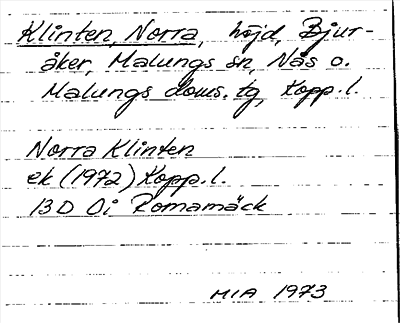 Klinten, Norra, höjd, Bjur-
åker, Malungs sn, Nås o.
Malungs doms. tg, Kopp. l.
Norra Klinten
ek (1972) Kopp. l.
13D 0i Romamäck
MIA 1973